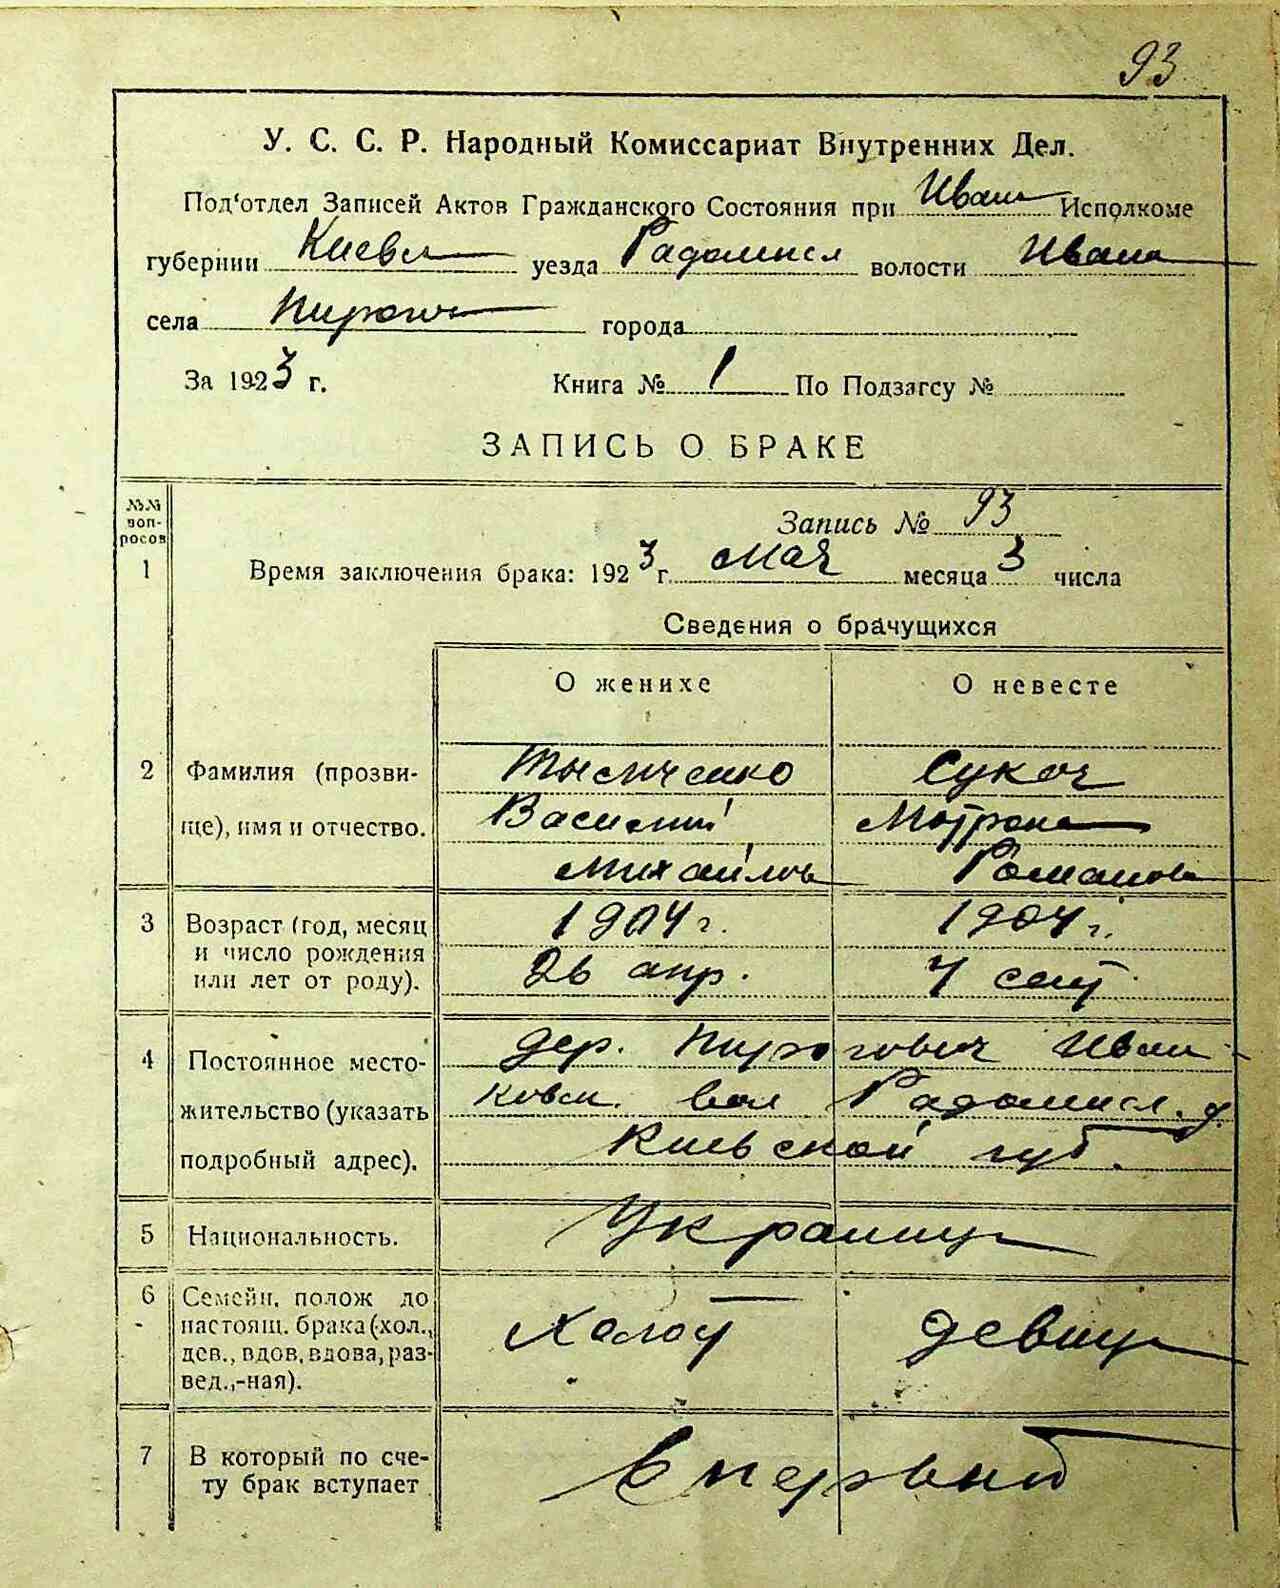 93
У. С. С. Р. Народный Комиссариат Внутренних Дел.
Под‘отдел Записей Актов Гражданского Состояния при Иван Исполкоме
губернии Киевс уезда Радомисл волости Иванк
села Пирогов города
За 1923 г. Книга № 1 По Подзагсу №
ЗАПИСЬ О БРАКЕ
№№ воп-росов
Запись № 93
1 Время заключения брака: 1923 г. мая месяца 3 числа
Сведения о брачущихся
О женихе О невесте
2 Фамилия (прозви- Тысиченко Сукач
ще), имя и отчество. Василий Мотрона
Михайлов Романов
3 Возраст (год, месяц 1904 г. 1904 г.
и число рождения
или лет от роду). 26 апр. 7 сент
4 Постоянное место- дер. Пирогович Иван-
жительство (указать ковск. вол Радомисл. у.
подробный адрес). Киевской губ.
5 Национальность. Украинц
6 Семейн. полож до
настоящ. брака (хол., Холост девиц
дев., вдов, вдова, раз-
вед.,-ная).
7 В который по сче- В первый
ту брак вступает